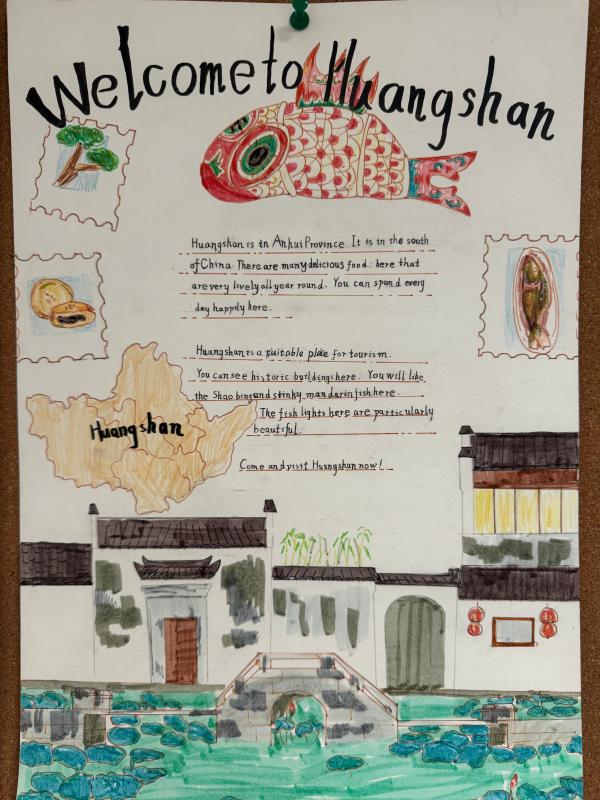 Welcome to Huangshan
Huangshan is in Anhui Province. It is in the south
of China. There are many delicious food here that
are very lively all year round. You can spend every
day happily here.
Huangshan is a suitable place for tourism.
You can see historic buildings here. You will like
the Shao bing and stinky mandarin fish here.
The fish lights here are particularly
beautiful.
Come and visit Huangshan now!
Huangshan